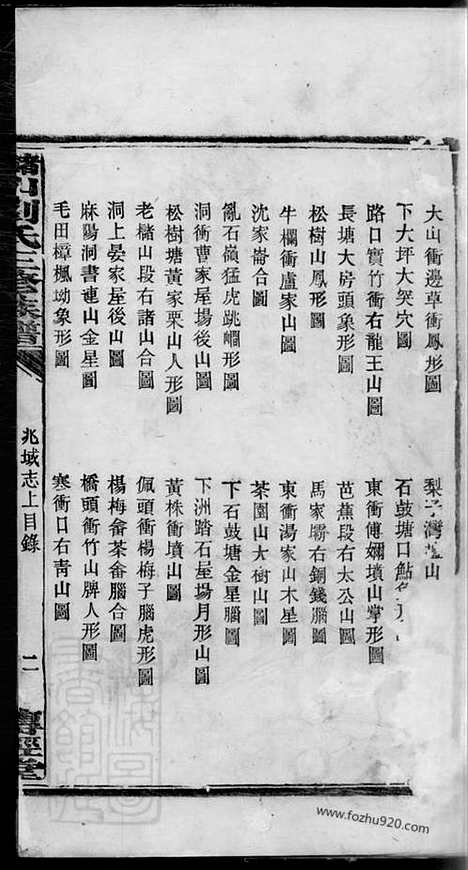 大山衝邊草衝鳳形圖
下大坪大突穴圖
路口實竹衝右龍王山圖
長塘大房頭象形圖
松樹山鳳形圖
牛欄衝盧家山圖
沈家崙合圖
亂石嶺猛虎跳㵎形圖
洞衝曹家屋場後山圖
松樹塘黃家栗山人形圖
老櫧山段右諸山合圖
洞上晏家屋後山圖
麻陽洞書連山金星圖
毛田樟楓坳象形圖
梨子灣 山
石鼓塘口鮎
東衝傅爛墳山掌形圖
芭蕉段右太公山圖
馬家壩右銅錢腦圖
東衝湯家山木星圖
茶園山大樹山圖
下石鼓塘金星腦圖
下洲踏石屋場月形山圖
黃株衝墳山圖
佩頭衝楊梅子腦虎形圖
楊梅畬茶畬腦合圖
橋頭衝竹山牌人形圖
寒衝口右青山圖
劉氏三修族譜
兆域志上目錄
二
尊經堂
www.fozhu920.com